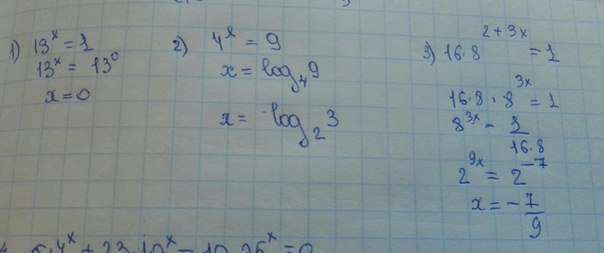 1) 13^x = 1
13^x = 13^0
x = 0
2) 4^x = 9
x = log_4 9
x = log_2 3
3) 16·8^(2+3x) = 1
16·8·8^(3x) = 1
8^(3x) = 1/(16·8)
2^(9x) = 2^(-7)
x = -7/9